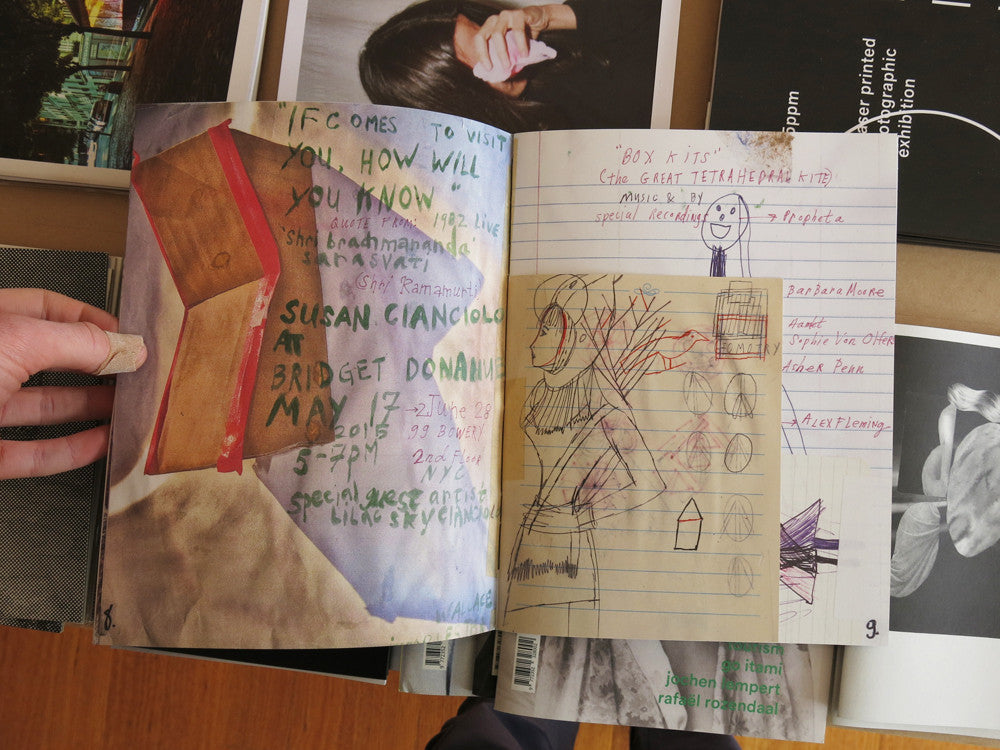 "IF C OMES TO VISIT
YOU, HOW WILL
YOU KNOW"
QUOTE FROM: 1982 LIVE
'Shri brahmananda'
sarasvati
(Shri Ramamurti
SUSAN CIANCIOLO
AT
BRIDGET DONAHUE
MAY 17 → 2 June 28
2015 99 BOWERY
5-7PM 2nd Floor
NYC
special guest artist
LILAC SKY CIANCIOLO
WALLACE
8.
"BOX KITS"
(the GREAT TETRAHEDRAL KITE)
MUSIC & BY
special Recordings → Propheta
BarBara Moore
Sophie Von Olfers
Asher Penn
→ ALEX Fleming
9.
5ppm
aser printed
otographic
exhibition
go itami
jochen lempert
rafaël rozendaal